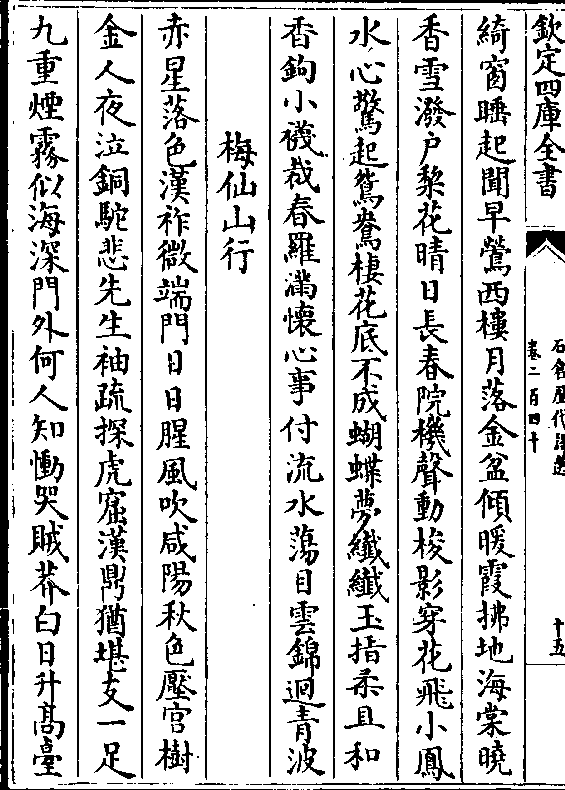 欽定四庫全書
石倉歷代詩選
卷二百四十
十五
綺窗睡起聞早鶯西樓月落金盆傾暖霞拂地海棠曉
香雪潑户黎花晴日長春院機聲動梭影穿花飛小鳳
水心驚起鴛鴦棲花底不成蝴蝶夢纖纖玉指柔且和
香鉤小襪裁春羅滿懷心事付流水蕩目雲錦迴青波
梅仙山行
赤星落色漢祚微端門日日腥風吹咸陽秋色壓宫樹
金人夜泣銅駝悲先生袖疏探虎窟漢鼎猶堪支一足
九重煙霧似海深門外何人知慟哭賊莽白日升髙臺